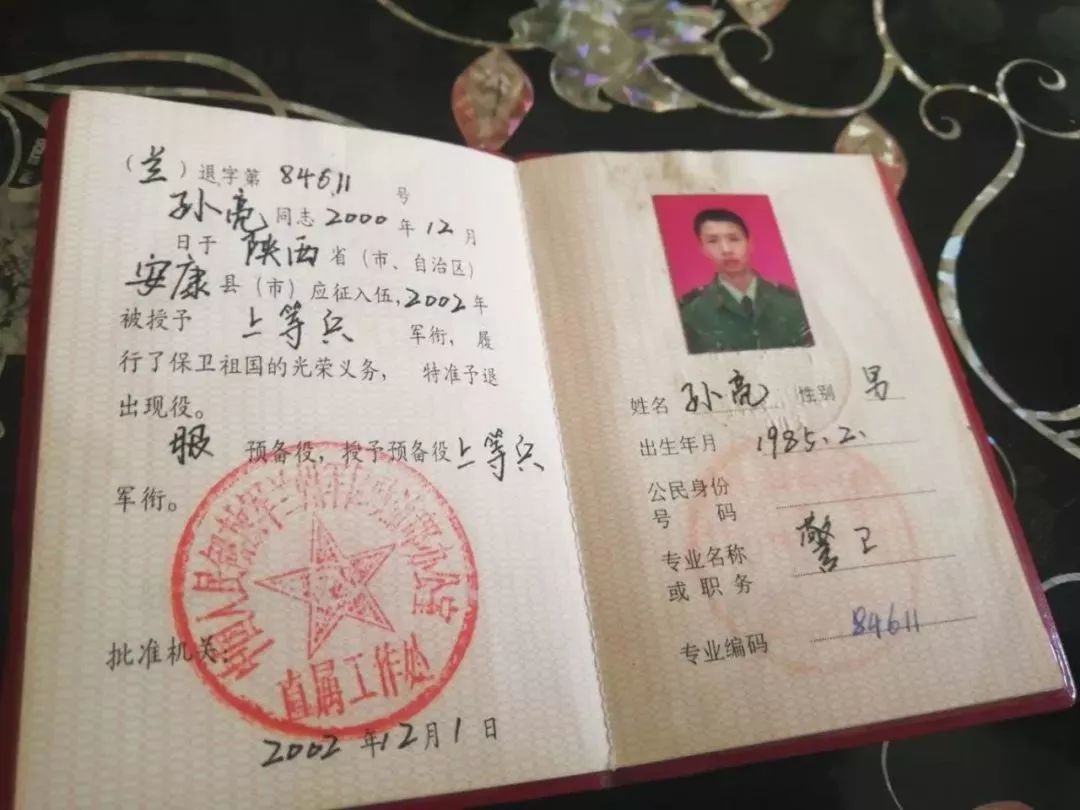 （兰）退字第 84611 号
孙亮 同志 2000 年 12 月
日于 陕西 省（市、自治区）
安康 县（市）应征入伍,2002年
被授予 上等兵 军衔，履
行了保卫祖国的光荣义务， 特准予退
出现役。
服 预备役，授予预备役上等兵
军衔。
批准机关：
直属工作处
2002年12月1日
姓名 孙亮 性别 男
出生年月 1985.2.
公民身份
号 码
专业名称 警卫
或职务
专业编码 84611